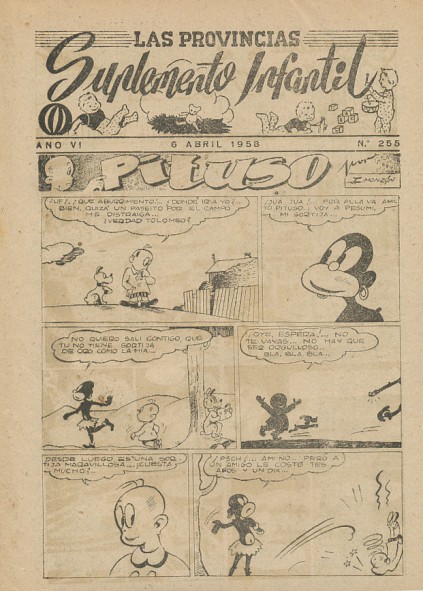 LAS PROVINCIAS
Suplemento Infantil
AÑO VI
6 ABRIL 1958
N.º 255
PITUSO
por
¡UF!.. ¡QUE ABURRIMIENTO!.. ¿DONDE IRIA YO?..
BIEN, QUIZA UN PASEITO POR EL CAMPO
ME DISTRAIGA...
¿VERDAD TOLOMEO?
¡JUA, JUA!.. POR ALLA VA AMI
TO PITUSO. VOY A PESUMI,
MI SORTIJA...
NO QUIERO SALI CONTIGO, QUE
TU NO TIENE SORTIJA
DE ORO COMO LA MIA...
¡OYE, ESPERA!... NO
TE VAYAS... NO HAY QUE
SER ORGULLOSO...
BLA, BLA, BLA...
DESDE LUEGO ES UNA SOR-
TIJA MARAVILLOSA... ¿CUESTA
MUCHO?
¡PSCH!... AMI NO... PERO A
UN AMIGO LE COSTO TES
AÑOS Y UN DIA...